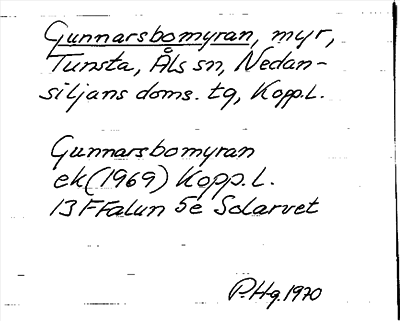 Gunnarsbomyran, myr,
Tunsta, Åls sn, Nedan-
siljans doms. tg, Kopp.L.
Gunnarsbomyran
ek(1969) Kopp.L.
13 F Falun 5e Solarvet
P.Hg.1970